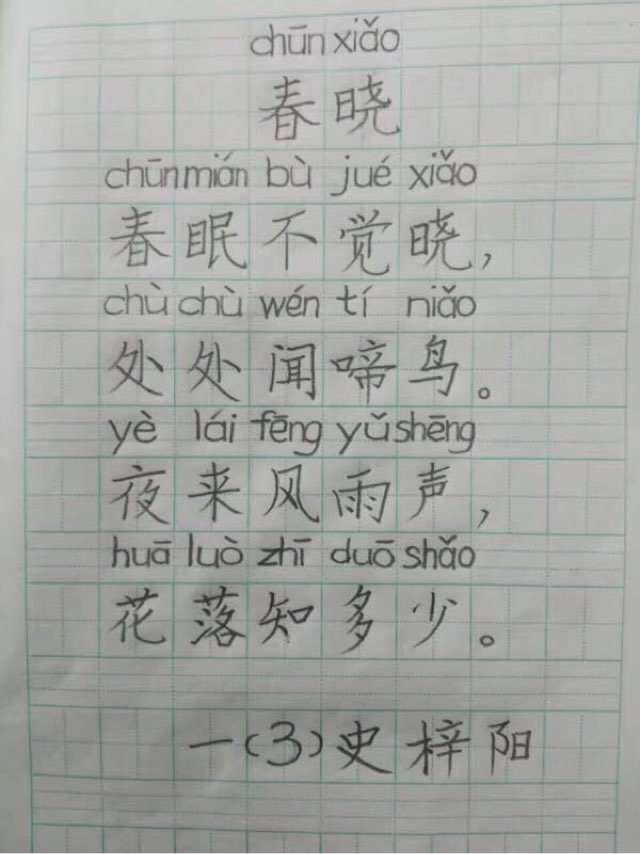 chūn xiǎo
春晓
chūn mián bù jué xiǎo
春眠不觉晓，
chù chù wén tí niǎo
处处闻啼鸟。
yè lái fēng yǔ shēng
夜来风雨声，
huā luò zhī duō shǎo
花落知多少。
一（3）史梓阳